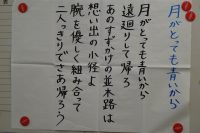 月がとっても青いから
月がとっても青いから
遠廻りして帰ろ
あのすずかけの並木路は
想い出の小径よ
腕を優しく組み合って
二人っきりでさあ帰ろう